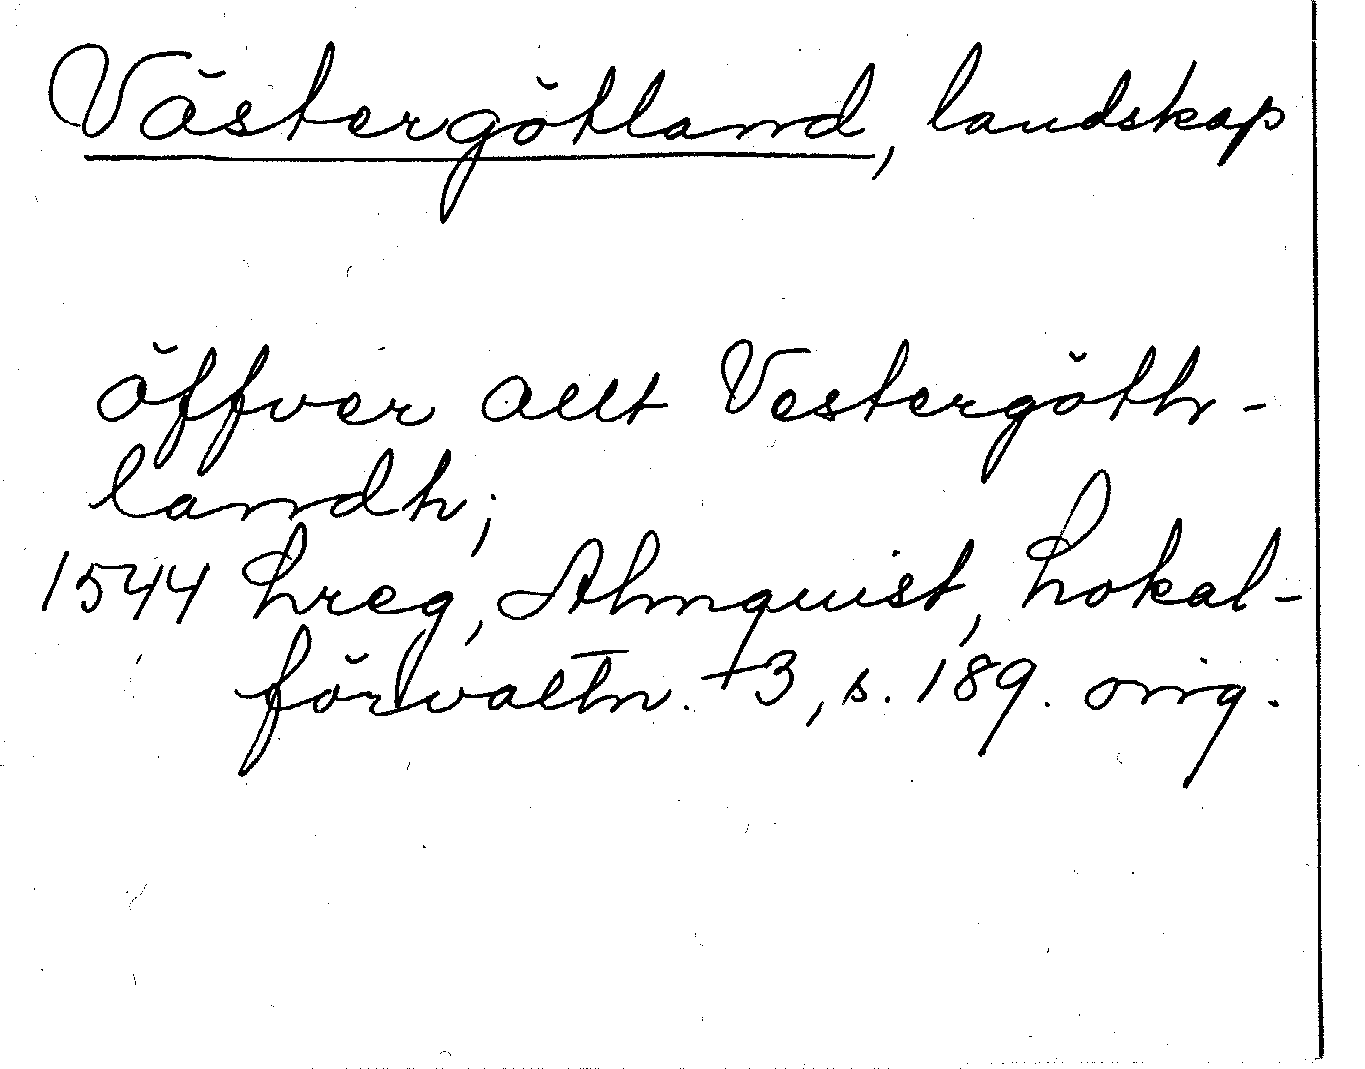 Västergötland, landskap
öffver allt Vestergöth-
landh;
1544 Lreg, Almquist, Lokal-
förvaltn. +3, s. 189. orig.